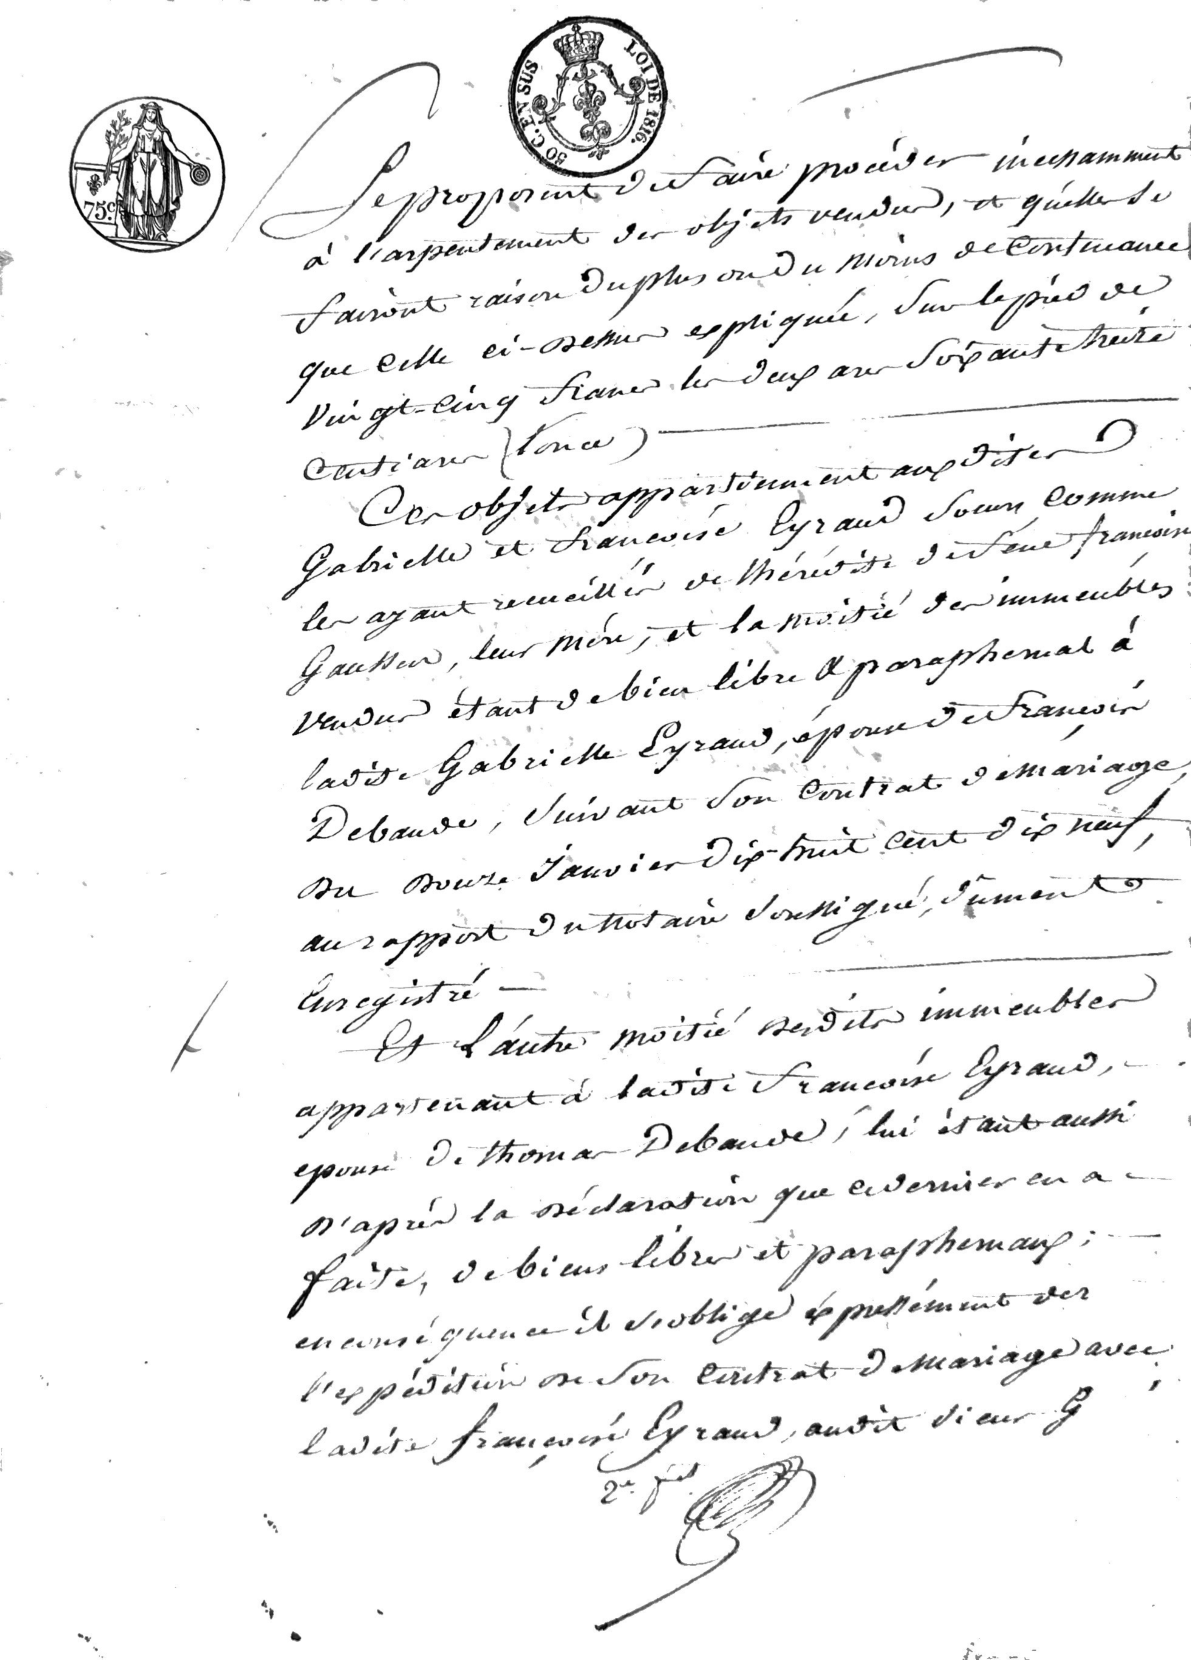 50 C. EN SUS LOI DE 1816.
75 c.
Se proposent de faire procéder incessamment
à l'arpentement des objets vendus, et qu'elles se
fairont raison du plus ou du moins de contenance
que celle ci-dessus expliquée, sur le pied de
vingt-cinq francs les deux ares soixante treize
centiares (l'once)
Ces objets appartiennent auxdites
Gabrielle et françoise Eyraud soeurs, comme
les ayant recueillis de l'hérédité de feue françoise
Gaussen, leur mère, et la moitié des immeubles
vendus étant de bien libre & paraphernal à
ladite Gabrielle Eyraud, épouse de françois
Debaude, suivant son contrat de mariage,
du douze Janvier dix-huit cent dix neuf,
au rapport du Notaire soussigné, dûment
Enregistré —
Et l'autre moitié desdits immeubles
appartenant à ladite françoise Eyraud,
epouse de thomas Debaude, lui étant aussi
d'après la déclaration que ce dernier en a
faite, de biens libres et paraphernaux;
en conséquence il s'oblige expressément
l'expédition de son contrat de mariage avec
ladite françoise Eyraud, audit sieur G
2e